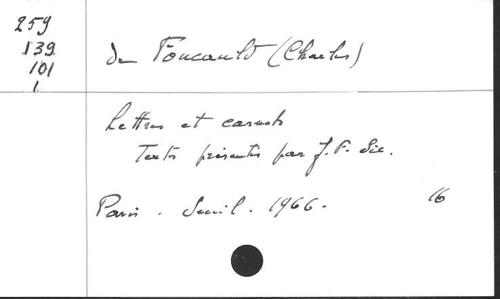 259
139
101
1
de Foucauld (Charles)
Lettres et carnets
Textes présentés par J.F. Six.
Paris. Seuil. 1966.
16